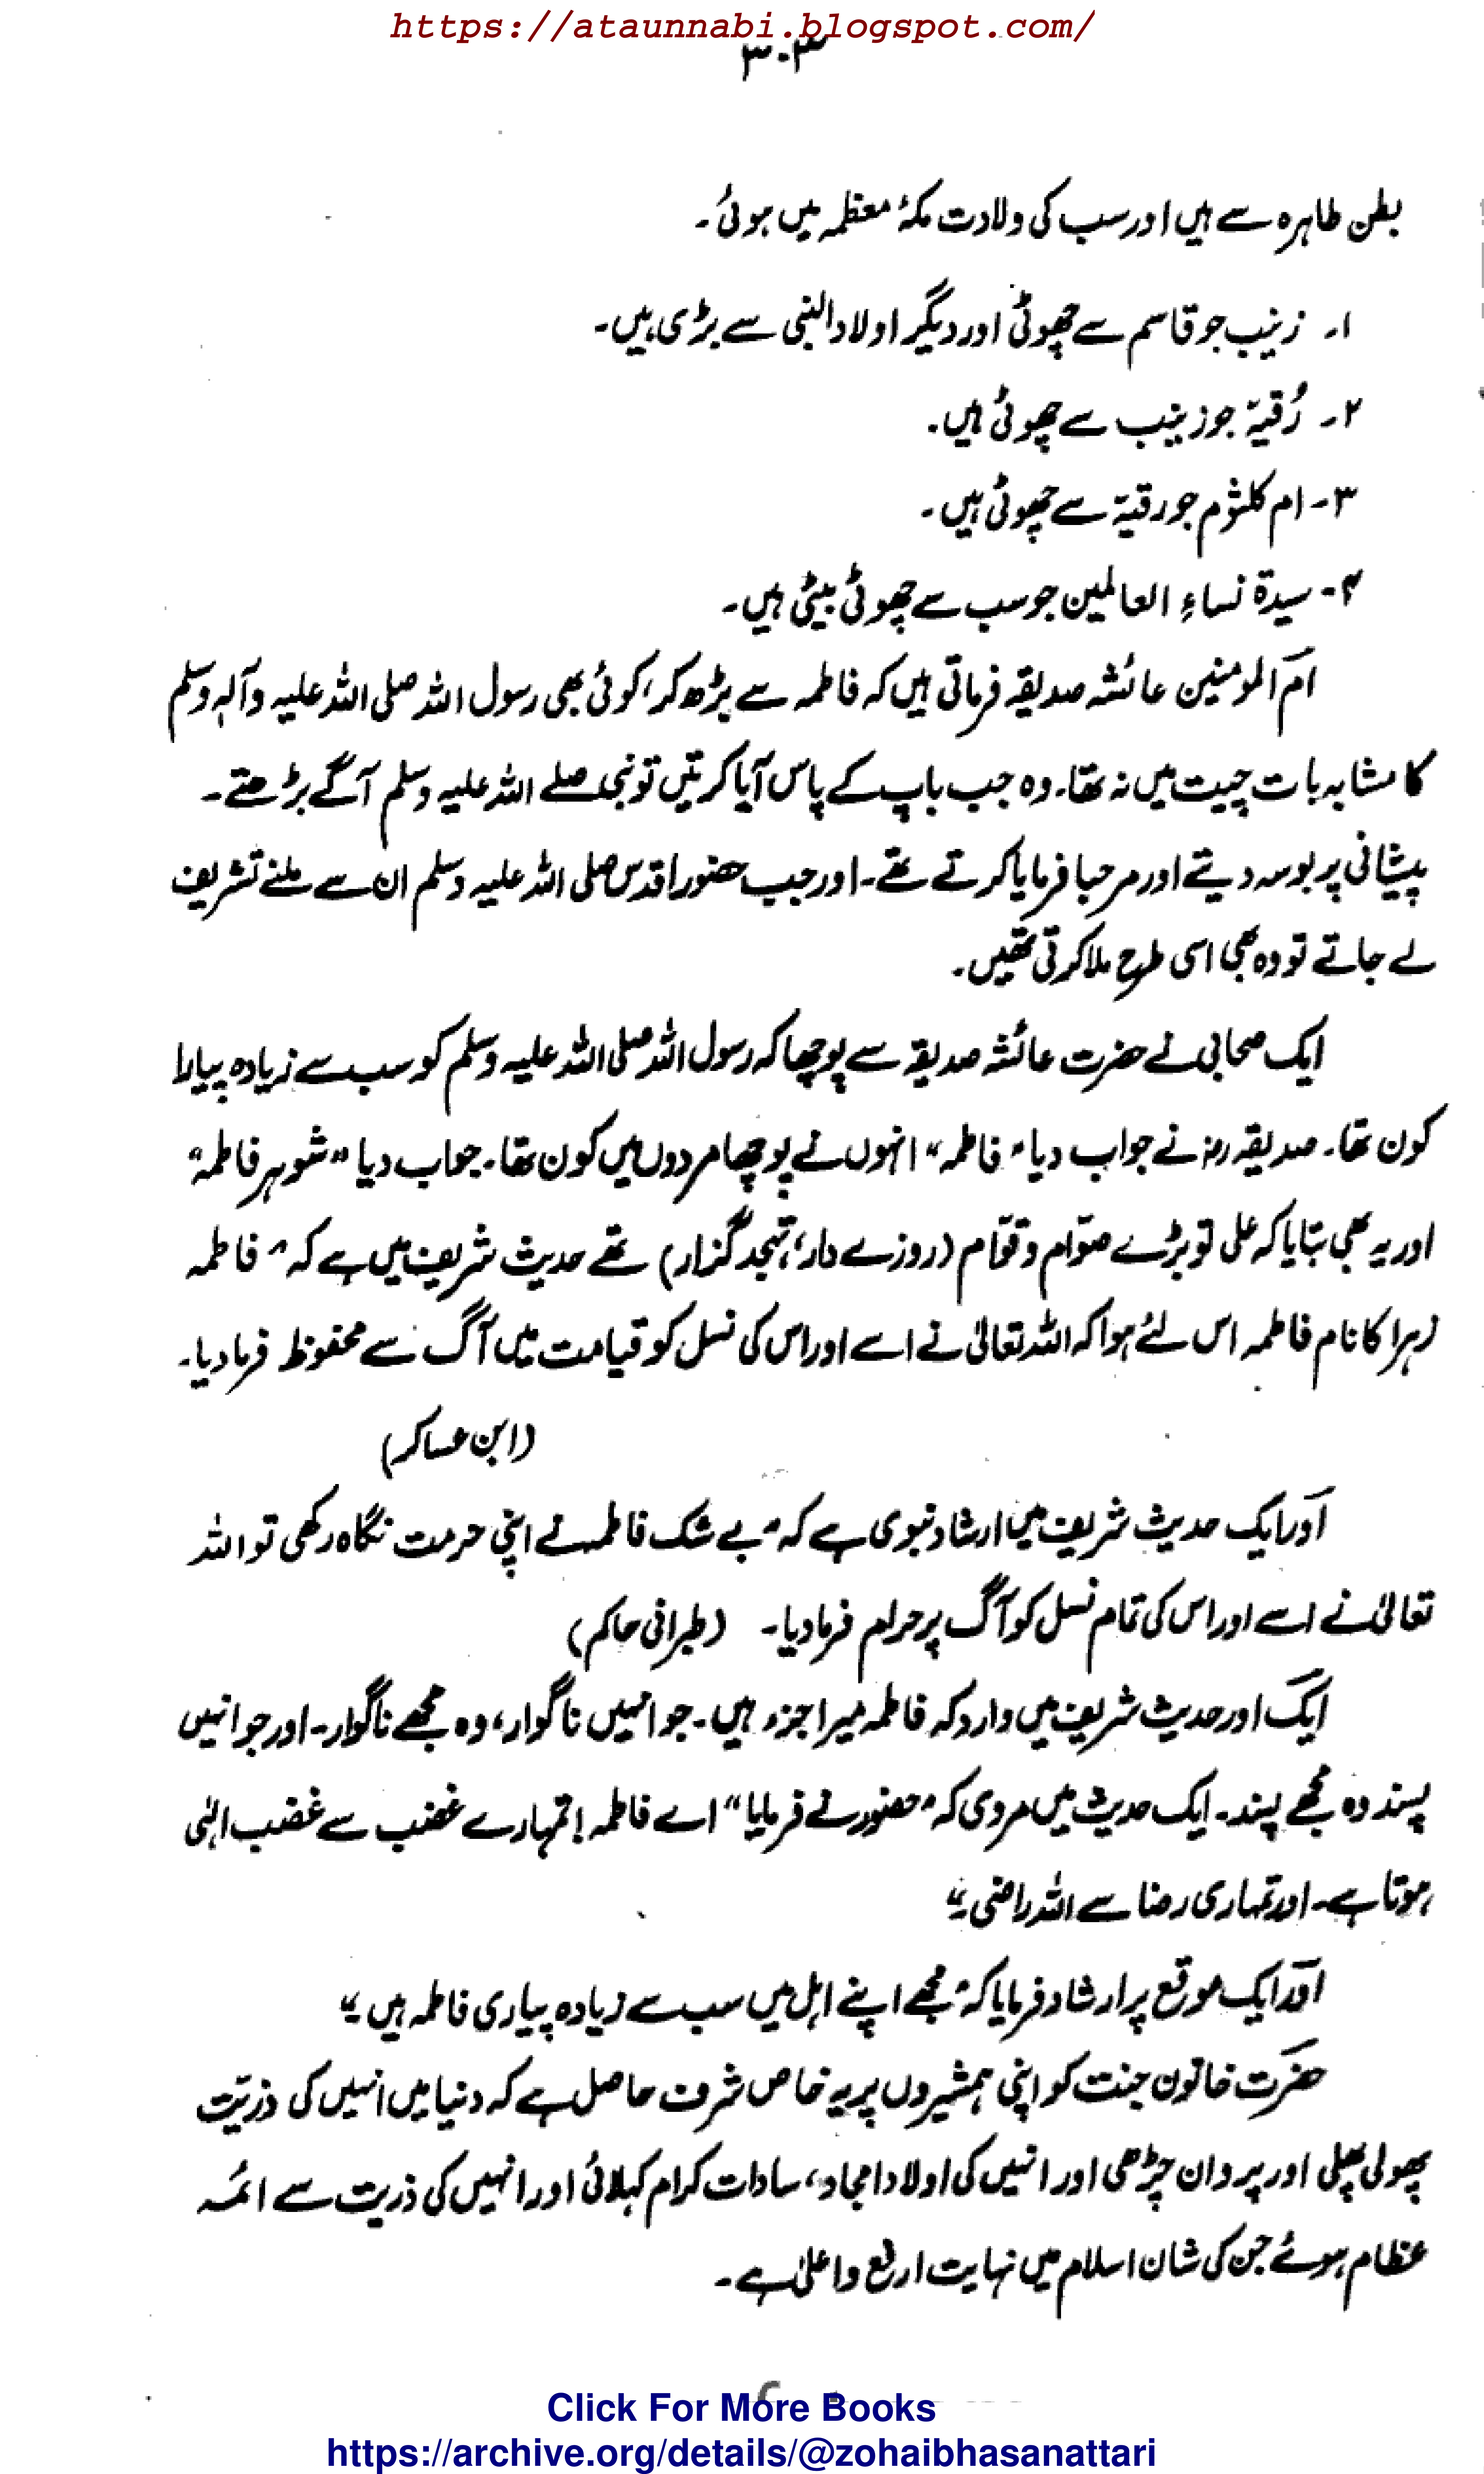 https://ataunnabi.blogspot.com/
۳۰۳
بطن طاہرہ سے ہیں اور سب کی ولادت مکۂ معظمہ میں ہوئی۔
۱۔ زینب جو قاسم سے چھوٹی اور دیگر اولاد النبی سے بڑی ہیں۔
۲۔ رُقیّہ جو زینب سے چھوٹی ہیں۔
۳۔ ام کلثوم جو رقیّہ سے چھوٹی ہیں۔
۴۔ سیدۃ نساءِ العالمین جو سب سے چھوٹی بیٹی ہیں۔
امّ المومنین عائشہ صدیقہ فرماتی ہیں کہ فاطمہ سے بڑھ کر، کوئی بھی رسول اللہ صلی اللہ علیہ وآلہٖ وسلم
کا مشابہ بات چیت میں نہ تھا۔ وہ جب باپ کے پاس آیا کرتیں تو نبی صلے اللہ علیہ وسلم آگے بڑھتے۔
پیشانی پر بوسہ دیتے اور مرحبا فرمایا کرتے تھے۔ اور جب حضور اقدس صلی اللہ علیہ وسلم ان سے ملنے تشریف
لے جاتے تو وہ بھی اسی طرح ملا کرتی تھیں۔
ایک صحابی نے حضرت عائشہ صدیقہ سے پوچھا کہ رسول اللہ صلی اللہ علیہ وسلم کو سب سے زیادہ پیارا
کون تھا۔ صدیقہ رضؓ نے جواب دیا ”فاطمہ“ انہوں نے پوچھا مردوں میں کون تھا۔ جواب دیا ”شوہر فاطمہ“
اور یہ بھی بتایا کہ علی تو بڑے صوّام و قوّام (روزے دار، تہجد گزار) تھے حدیث شریف میں ہے کہ ”فاطمہ
زہرا کا نام فاطمہ اس لئے ہوا کہ اللہ تعالیٰ نے اسے اور اس کی نسل کو قیامت میں آگ سے محفوظ فرما دیا۔
(ابن عساکر)
اور ایک حدیث شریف میں ارشاد نبوی ہے کہ ”بے شک فاطمہ نے اپنی حرمت نگاہ رکھی تو اللہ
تعالیٰ نے اسے اور اس کی تمام نسل کو آگ پر حرام فرما دیا۔ (طبرانی حاکم)
ایک اور حدیث شریف میں وارد کہ فاطمہ میرا جزء ہیں۔ جو انہیں ناگوار، وہ مجھے ناگوار۔ اور جو انہیں
پسند وہ مجھے پسند۔ ایک حدیث میں مروی کہ ”حضور نے فرمایا“ اے فاطمہ! تمہارے غضب سے غضب الٰہی
ہوتا ہے۔ اور تمہاری رضا سے اللہ راضی۔“
اور ایک موقع پر ارشاد فرمایا کہ ”مجھے اپنے اہل میں سب سے زیادہ پیاری فاطمہ ہیں۔“
حضرت خاتون جنت کو اپنی ہمشیروں پر یہ خاص شرف حاصل ہے کہ دنیا میں انہیں کی ذرّیت
پھولی پھلی اور پروان چڑھی اور انہیں کی اولاد امجاد، سادات کرام کہلائی اور انہیں کی ذریت سے ائمہ
عظام ہوئے جن کی شان اسلام میں نہایت ارفع واعلیٰ ہے۔
Click For More Books
https://archive.org/details/@zohaibhasanattari